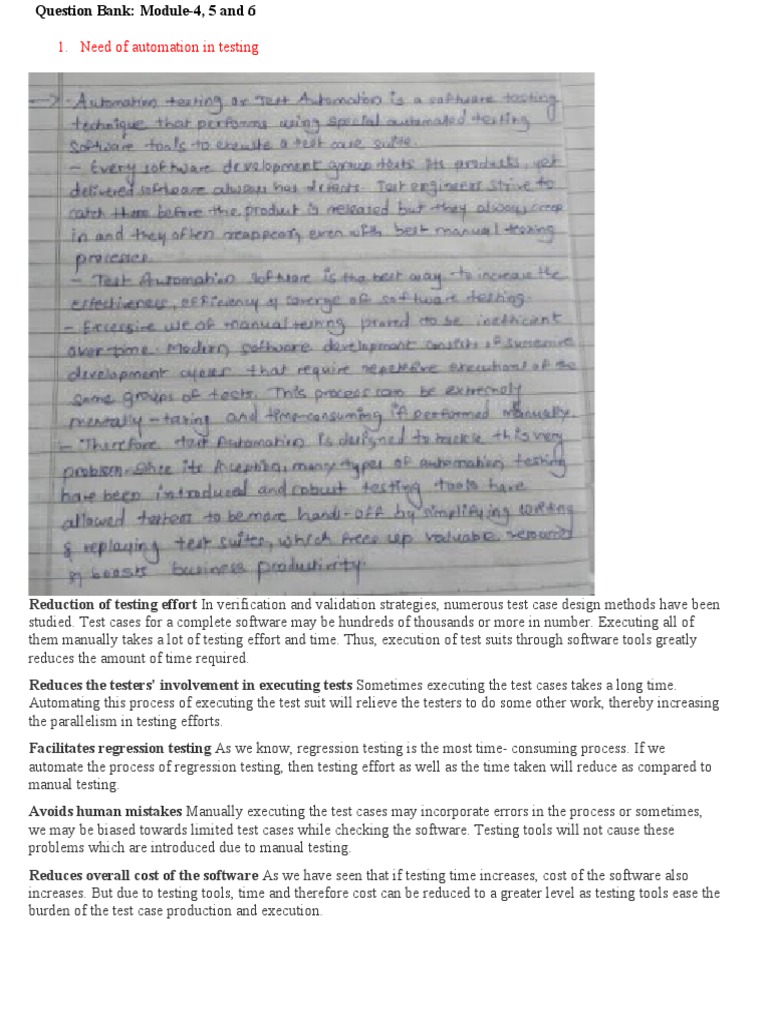 Question Bank: Module-4, 5 and 6
1. Need of automation in testing
→ - Automation testing or Test Automation is a software testing
technique that performs using special automated testing
software tools to execute a test case suite.
- Every software development group tests its products, yet
delivered software always has defects. Test engineers strive to
catch them before the product is released but they always creep
in and they often reappear, even with best manual testing
processes.
- Test Automation software is the best way to increase the
effectiveness, efficiency & coverge of software testing.
- Excessive use of manual testing proved to be inefficient
over time. Modern software development consists of
development cycles that require repetitive executions of the
same groups of tests. This process can be extremely
mentally-taxing and time-consuming if performed manually.
- Therefore test Automation is designed to tackle this very
problem. Since its inception, many types of automation testing
have been introduced and robust testing tools have
allowed testers to be more hands-off by simplifying writing
& replaying test suites, which frees up valuable resources
& boosts business productivity.
Reduction of testing effort In verification and validation strategies, numerous test case design methods have been
studied. Test cases for a complete software may be hundreds of thousands or more in number. Executing all of
them manually takes a lot of testing effort and time. Thus, execution of test suits through software tools greatly
reduces the amount of time required.
Reduces the testers' involvement in executing tests Sometimes executing the test cases takes a long time.
Automating this process of executing the test suit will relieve the testers to do some other work, thereby increasing
the parallelism in testing efforts.
Facilitates regression testing As we know, regression testing is the most time- consuming process. If we
automate the process of regression testing, then testing effort as well as the time taken will reduce as compared to
manual testing.
Avoids human mistakes Manually executing the test cases may incorporate errors in the process or sometimes,
we may be biased towards limited test cases while checking the software. Testing tools will not cause these
problems which are introduced due to manual testing.
Reduces overall cost of the software As we have seen that if testing time increases, cost of the software also
increases. But due to testing tools, time and therefore cost can be reduced to a greater level as testing tools ease the
burden of the test case production and execution.